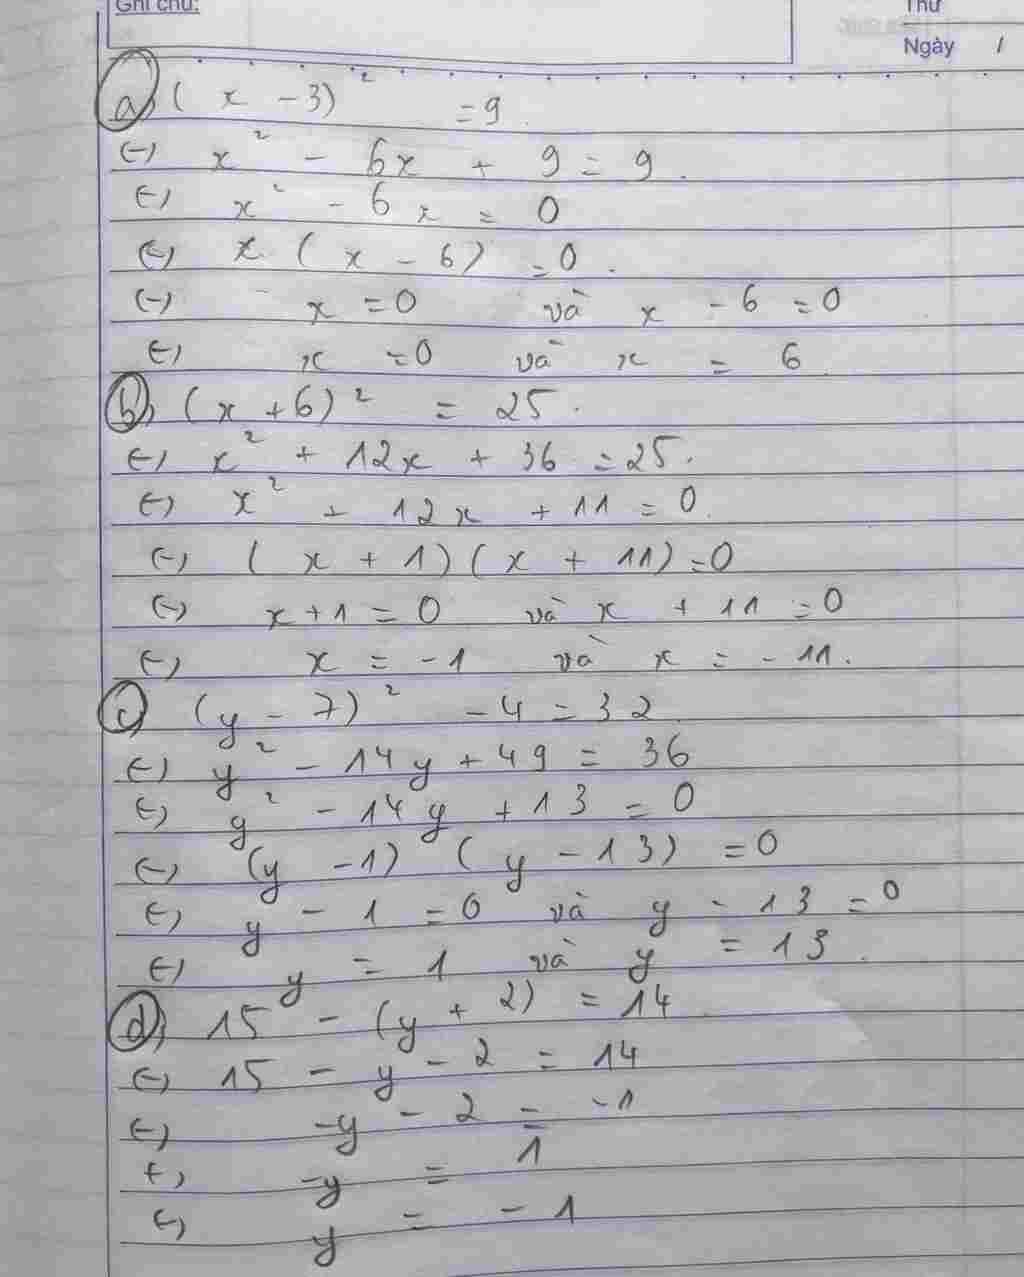 Ghi chú:
Thứ
Ngày /
a) (x - 3)² = 9.
(-) x² - 6x + 9 = 9.
(-) x² - 6x = 0
(-) x.(x - 6) = 0.
(-) x = 0 và x - 6 = 0
(-) x = 0 và x = 6.
b) (x + 6)² = 25.
(-) x² + 12x + 36 = 25.
(-) x² + 12x + 11 = 0.
(-) (x + 1)(x + 11) = 0
(-) x + 1 = 0 và x + 11 = 0
(-) x = -1 và x = -11.
c) (y - 7)² - 4 = 32
(-) y² - 14y + 49 = 36
(-) y² - 14y + 13 = 0
(-) (y - 1) (y - 13) = 0
(-) y - 1 = 0 và y - 13 = 0
(-) y = 1 và y = 13.
d) 15 - (y + 2) = 14
(-) 15 - y - 2 = 14
(-) -y - 2 = -1
(-) -y = 1
(-) y = -1